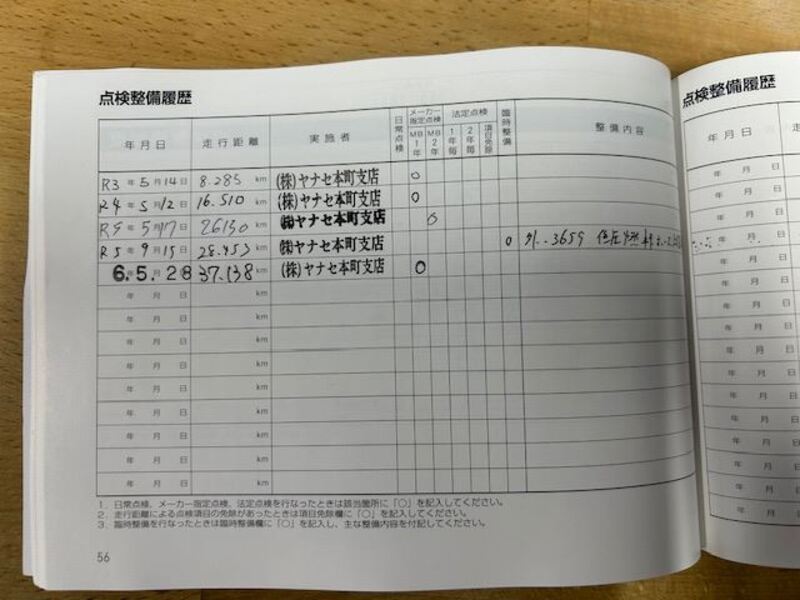 点検整備履歴
年月日 走行距離 実施者 日常点検 メーカー指定点検 MB1年 MB2年 法定点検 1年毎 2年毎 項目免除 臨時整備 整備内容
R3年5月14日 8.285 km (株)ヤナセ本町支店 ○
R4年5月12日 16.510 km (株)ヤナセ本町支店 ○
R5年5月17日 26130 km (株)ヤナセ本町支店 ○
R5年9月15日 28.453 km (株)ヤナセ本町支店 ○
6.5.28 37.138 km (株)ヤナセ本町支店 ○
年 月 日 km
年 月 日 km
年 月 日 km
年 月 日 km
年 月 日 km
年 月 日 km
年 月 日 km
年 月 日 km
年 月 日 km
1. 日常点検、メーカー指定点検、法定点検を行なったときは該当箇所に「○」を記入してください。
2. 走行距離による点検項目の免除があったときは項目免除欄に「○」を記入してください。
3. 臨時整備を行なったときは臨時整備欄に「○」を記入し、主な整備内容を付記してください。
56
点検整備履歴
年月日
年 月 日
年 月 日
年 月 日
年 月 日
年 月 日
年 月 日
年 月 日
年 月 日
年 月 日
年 月 日
年 月 日
年 月 日
年 月 日
年 月 日